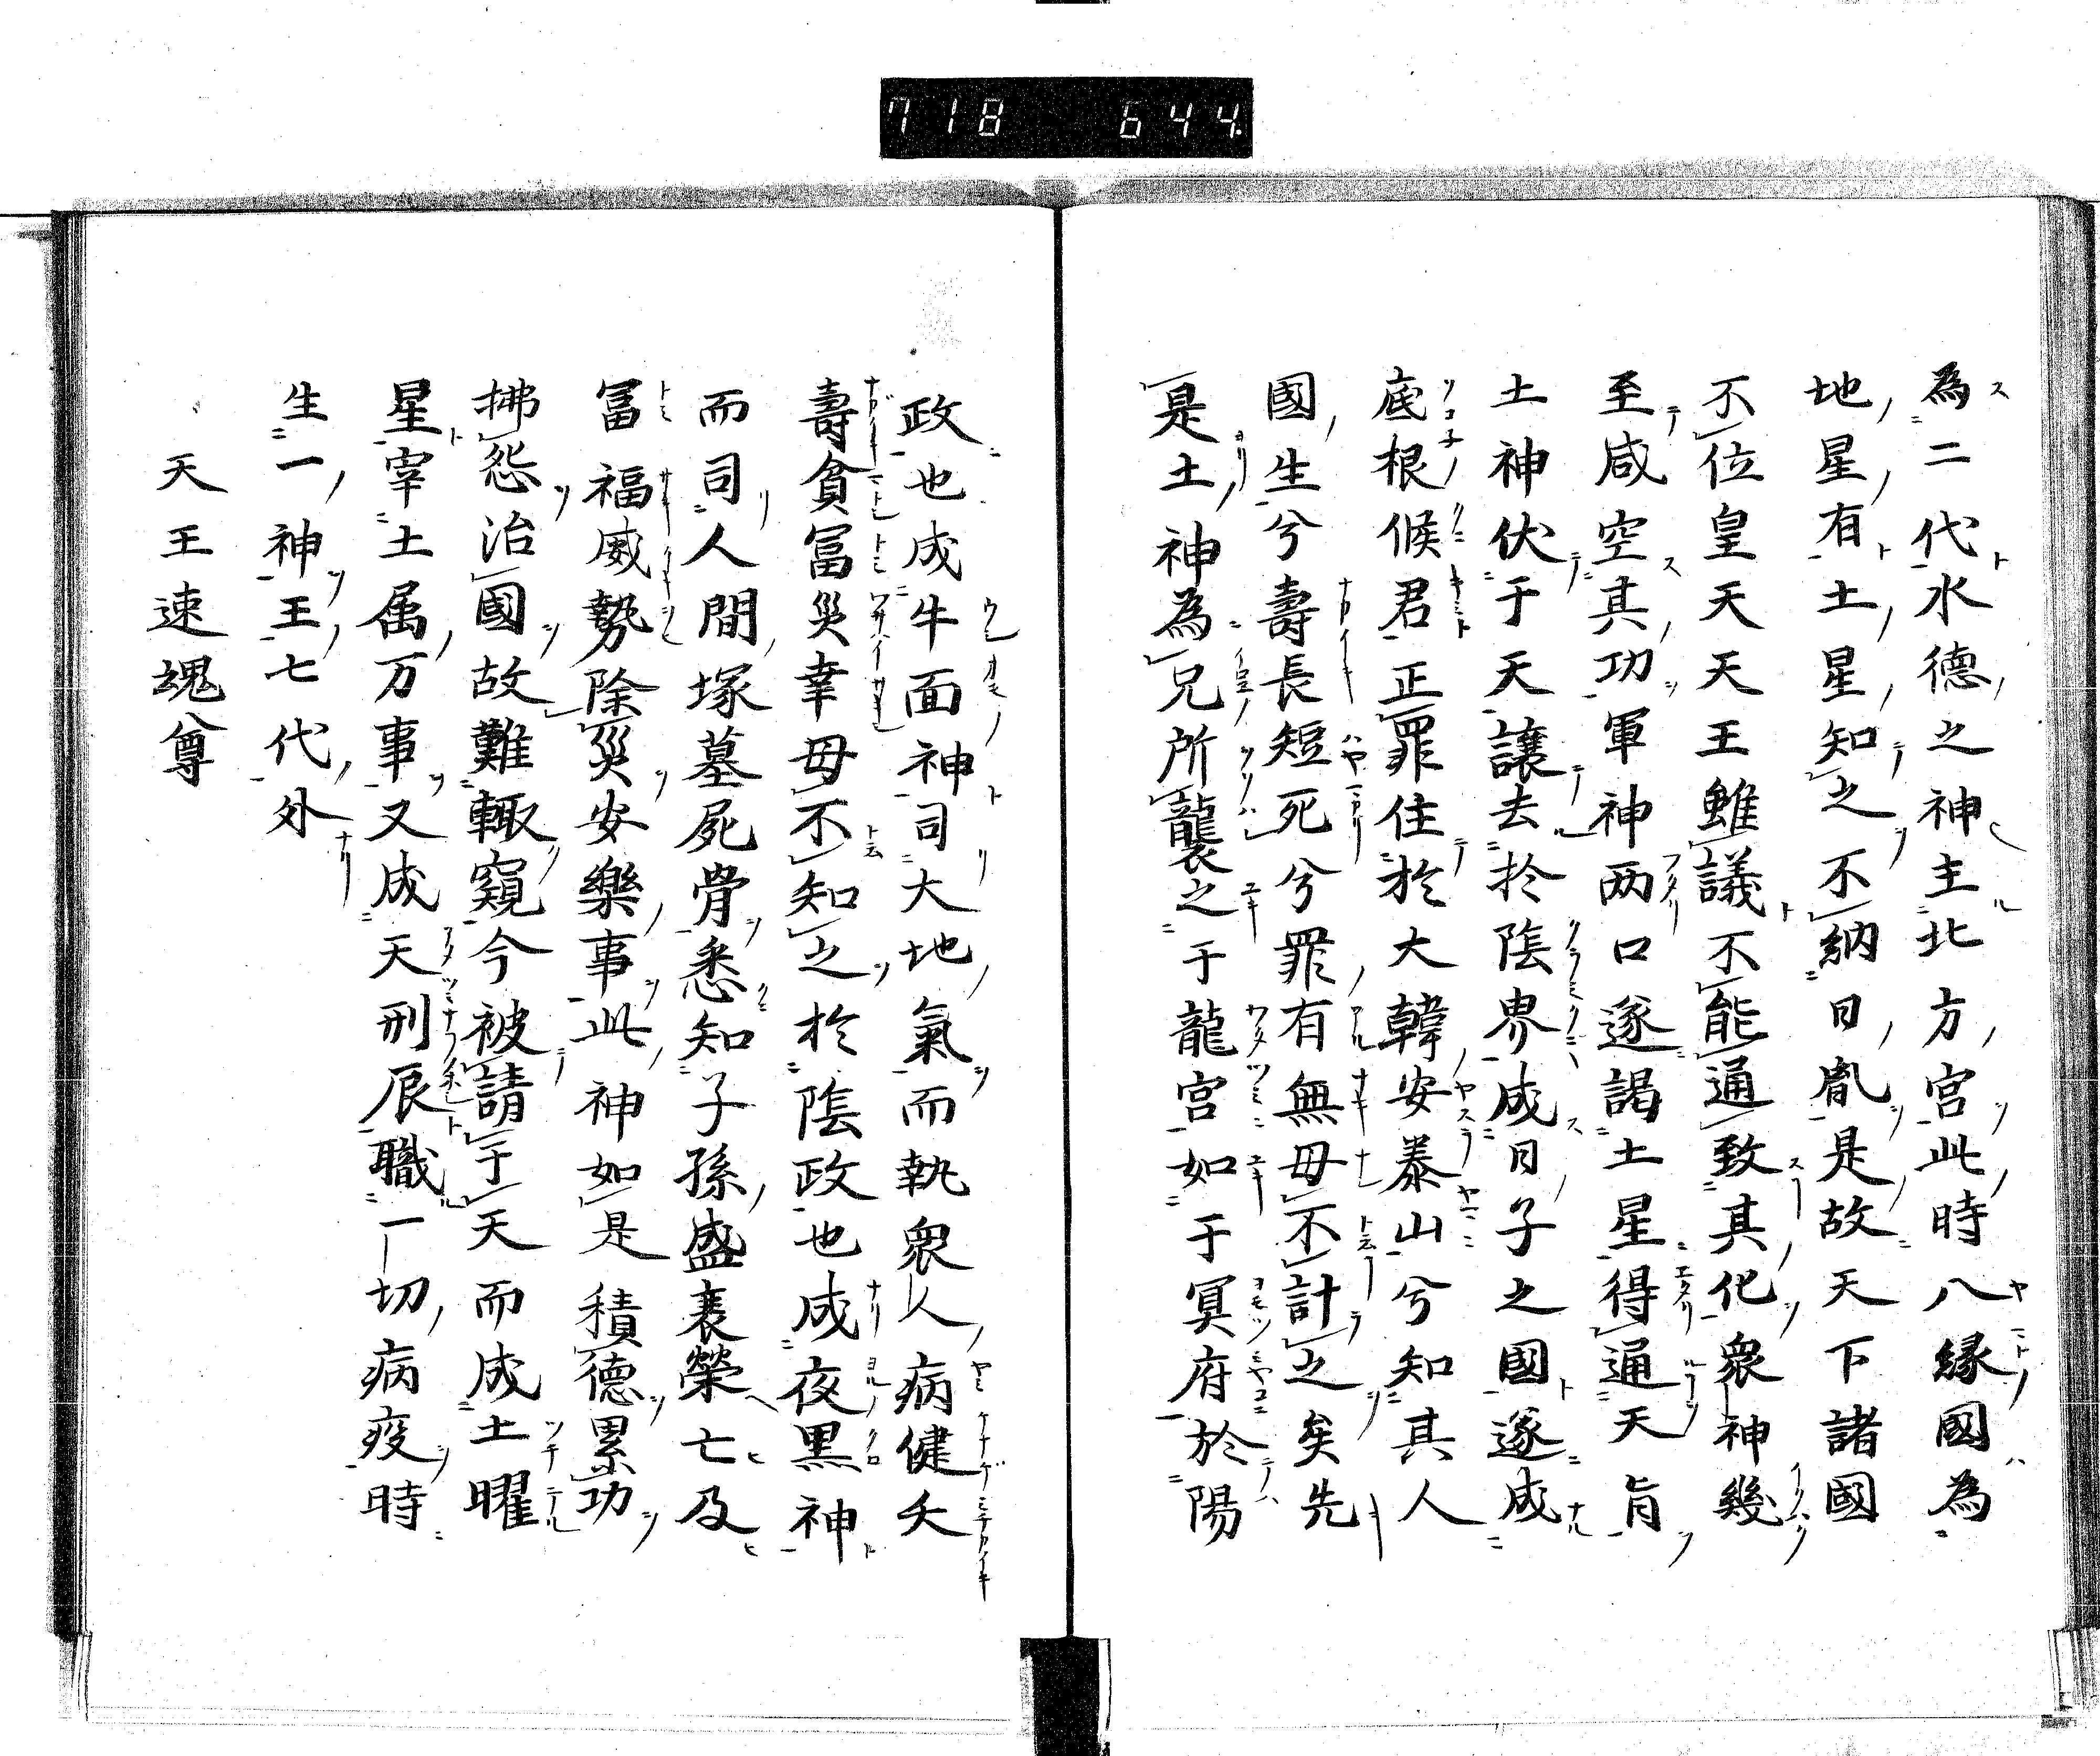 718 644
為二代水德之神主北方宮此時八緣國為
地星有土星知之不納日胤是故天下諸國
不位皇天天王雖議不能通致其化衆神幾
至咸空其功軍神两口遂謁土星得通天㫖
土神伏于天讓去於陰界成日子之國遂成
底根候君正罪住於大韓安泰山兮知其人
國生兮壽長短死兮罪有無毋不計之矣先
是土神為兄所襲之于龍宮如于冥府於陽
政也成牛面神司大地氣而執衆人病健夭
壽貧冨災幸毋不知之於陰政也成夜黒神
而司人間塚墓屍骨悉知子孫盛衰榮亡及
冨福威勢除災安樂事此神如是積德累功
拂怨治國故難輙窺今被請于天而成土曜
星宰土属万事又成天刑辰職一切病疫時
生一神王七代外
天王速魂尊